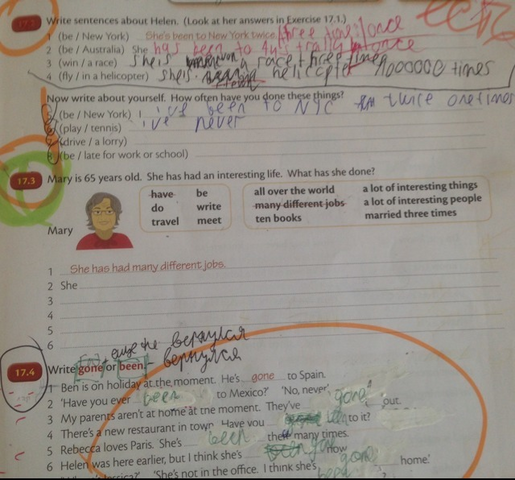 17.2 Write sentences about Helen. (Look at her answers in Exercise 17.1.)
1 (be / New York) She's been to New York twice. three times/once
2 (be / Australia) She has been to Australia once
3 (win / a race) she's a race three times
4 (fly / in a helicopter) she's helicopter 4000000 times
Now write about yourself. How often have you done these things?
5 (be / New York) I i've been to NYC twice one times
6 (play / tennis) i've never
7 (drive / a lorry)
8 (be / late for work or school)
17.3 Mary is 65 years old. She has had an interesting life. What has she done?
have be all over the world a lot of interesting things
do write many different jobs a lot of interesting people
travel meet ten books married three times
Mary
1 She has had many different jobs.
2 She
3
4
5
6
еще не вернулся
вернулся
17.4 Write gone or been.
1 Ben is on holiday at the moment. He's gone to Spain.
2 'Have you ever been to Mexico?' 'No, never.'
3 My parents aren't at home at the moment. They've gone out.
4 There's a new restaurant in town. Have you been to it?
5 Rebecca loves Paris. She's been there many times.
6 Helen was here earlier, but I think she's gone now.
'She's not in the office. I think she's gone home.'